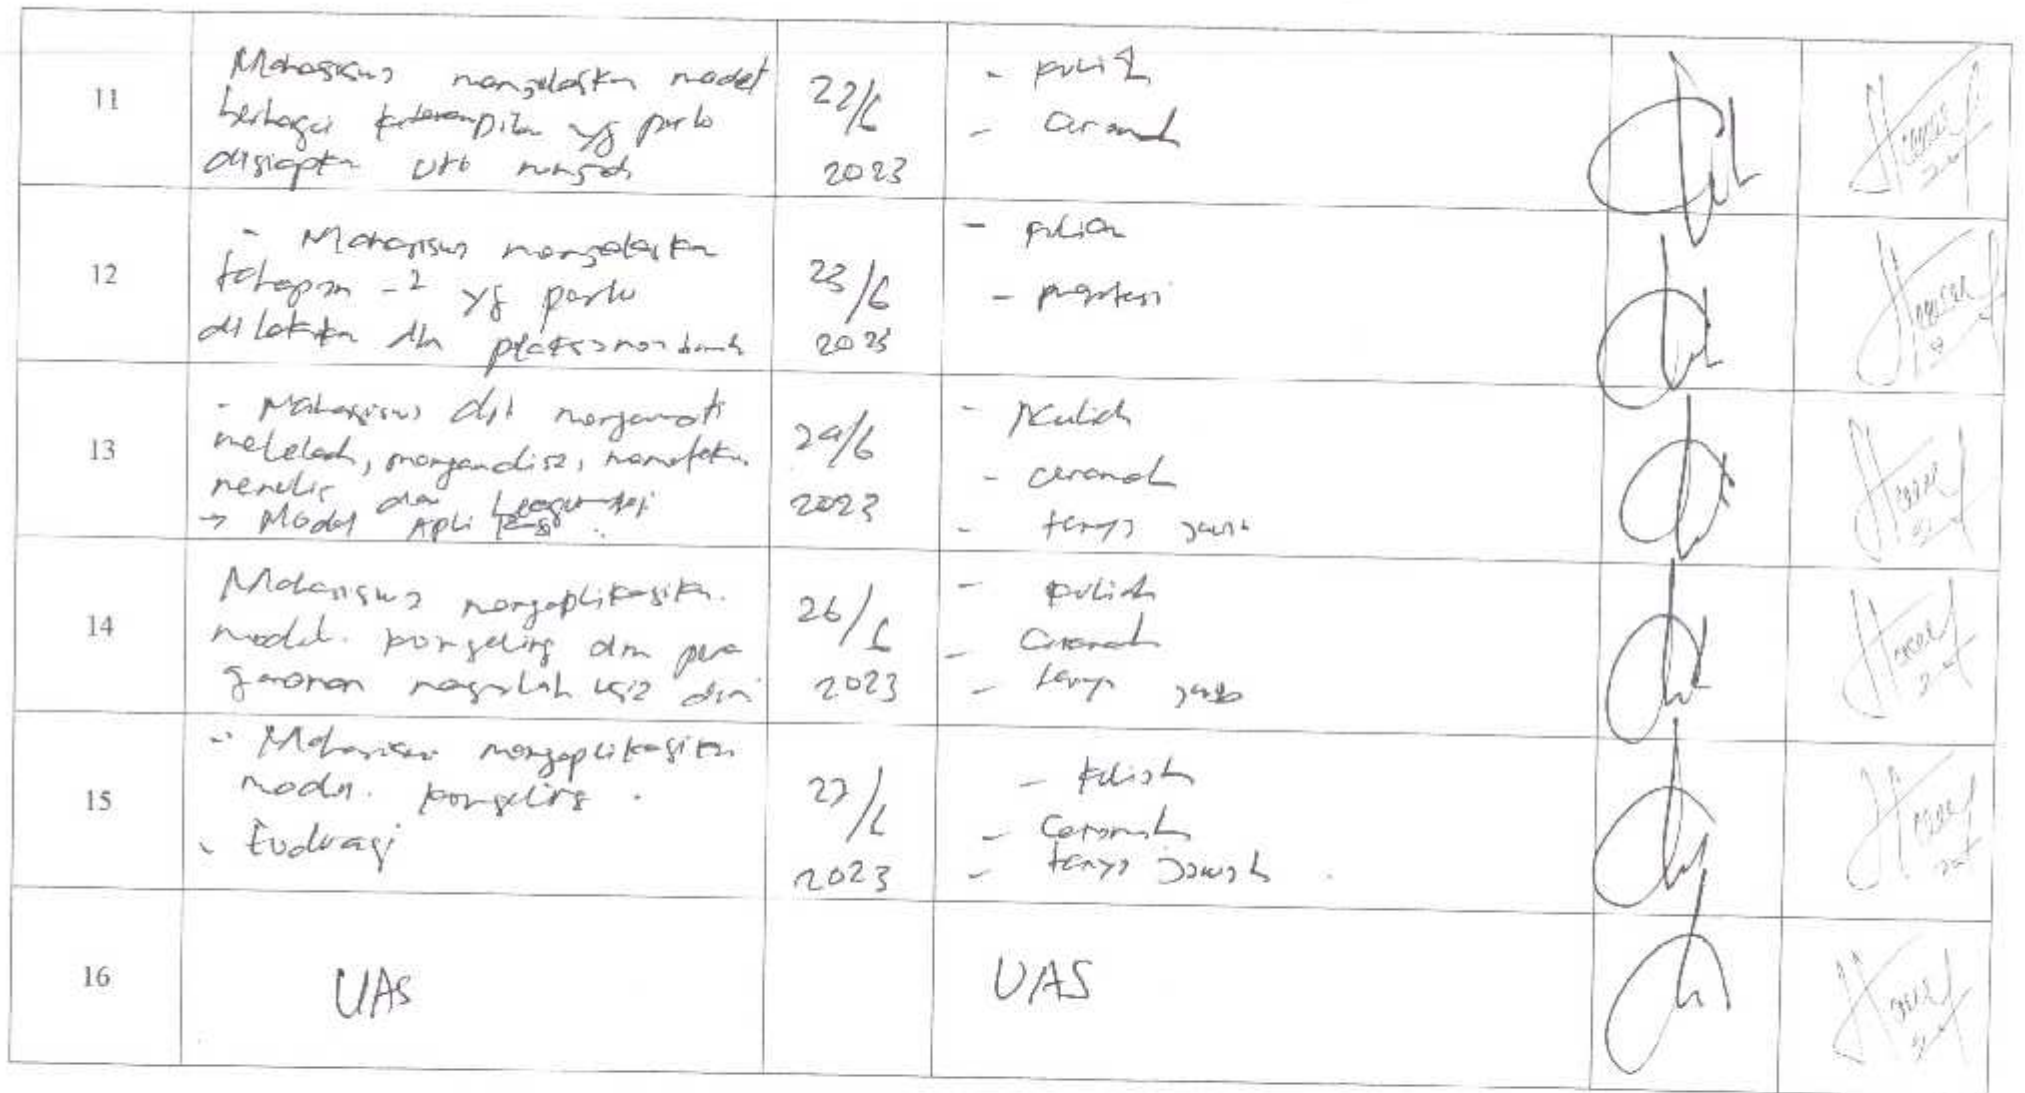 11
Mahasiswa menjelaskan model
berbagai keterampilan yg perlu
disiapkan utk
22/6
2023
- kuliah
- ceramah
12
- Mahasiswa menjelaskan
tahapan-2 yg perlu
dilakukan dlm
23/6
2023
- kuliah
13
- Mahasiswa dpt mengamati
menelaah, menganalisa,
menulis dan
→ Model Aplikasi
24/6
2023
- Kuliah
- ceramah
- tanya jawab
14
Mahasiswa mengaplikasikan
model. konseling dlm pena
nganan masalah usia dini
26/6
2023
- kuliah
- Ceramah
- tanya jawab
15
- Mahasiswa mengaplikasikan
model. konseling.
- Evaluasi
27/6
2023
- kuliah
- Ceramah
- tanya jawab.
16
UAS
UAS